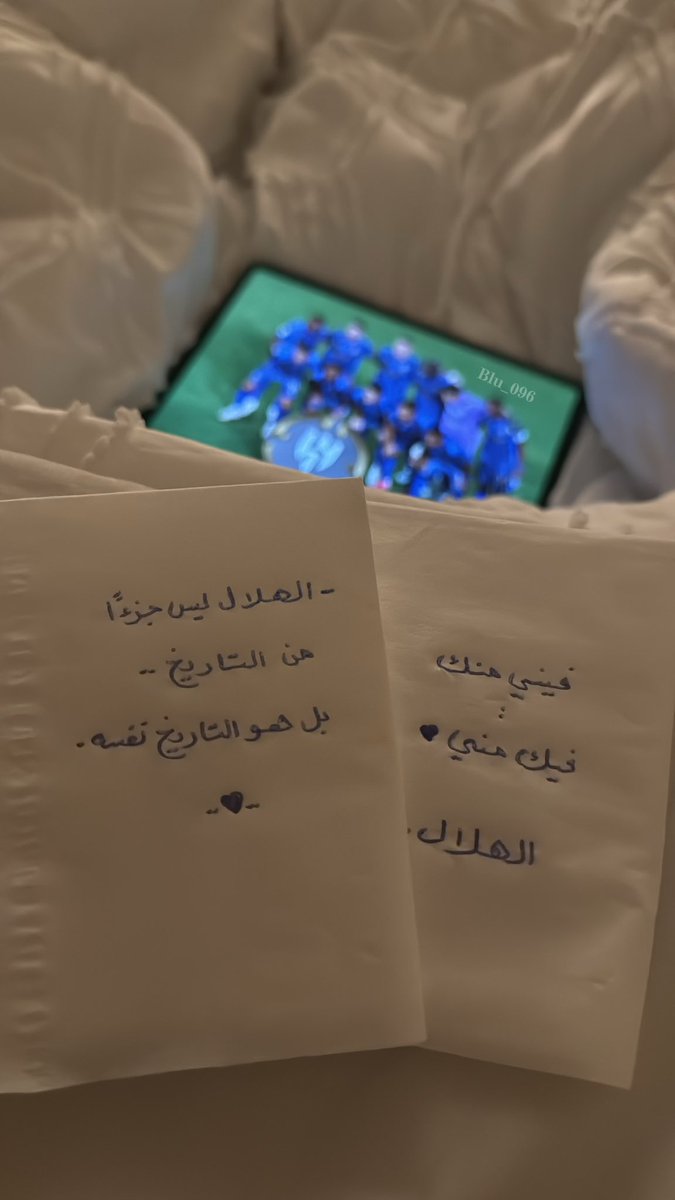 Blu_096
- الهلال ليس جزءًا
من التاريخ ..
بل هو التاريخ نفسه .
-♥-
فيني منك
:
فيك مني ♥
الهلال .